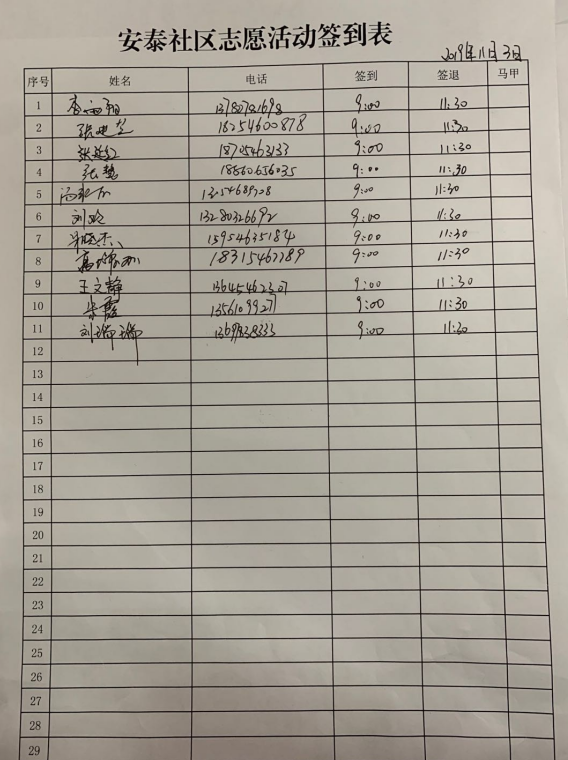 安泰社区志愿活动签到表
2019年11月3日
序号 姓名 电话 签到 签退 马甲
1 13780781698 9:00 11:30
2 18254600878 9:00 11:30
3 18705463133 9:00 11:30
4 张慧 18560656035 9:00 11:30
5 9:00 11:30
6 刘 13280326692 9:00 11:30
7 15954635184 9:00 11:30
8 18315467789 9:00 11:30
9 王文静 13645462307 9:00 11:30
10 朱霞 9:00 11:30
11 刘瑞瑞 9:00 11:30
12
13
14
15
16
17
18
19
20
21
22
23
24
25
26
27
28
29